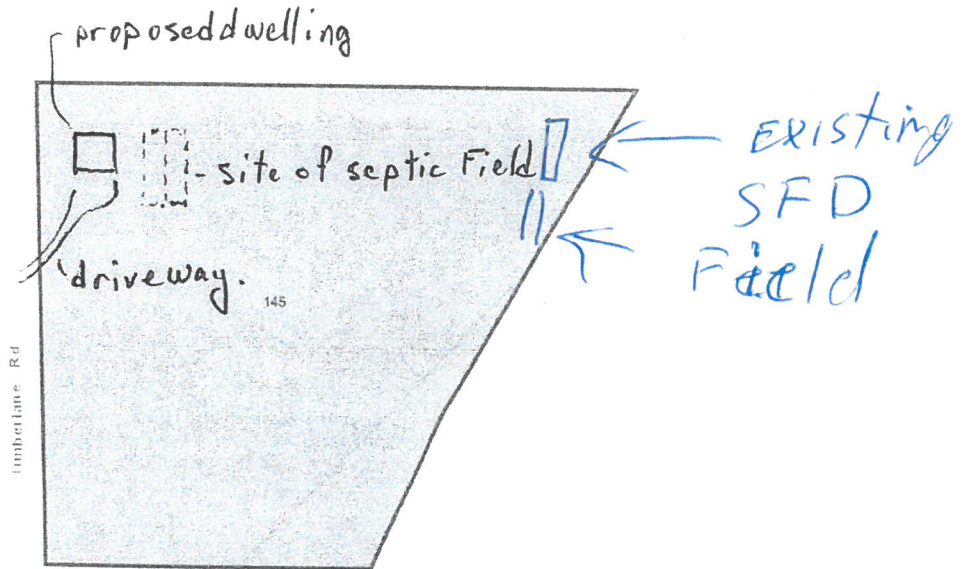 proposed dwelling
- site of septic Field
driveway.
145
Timberlane Rd
Existing
SFD
Field